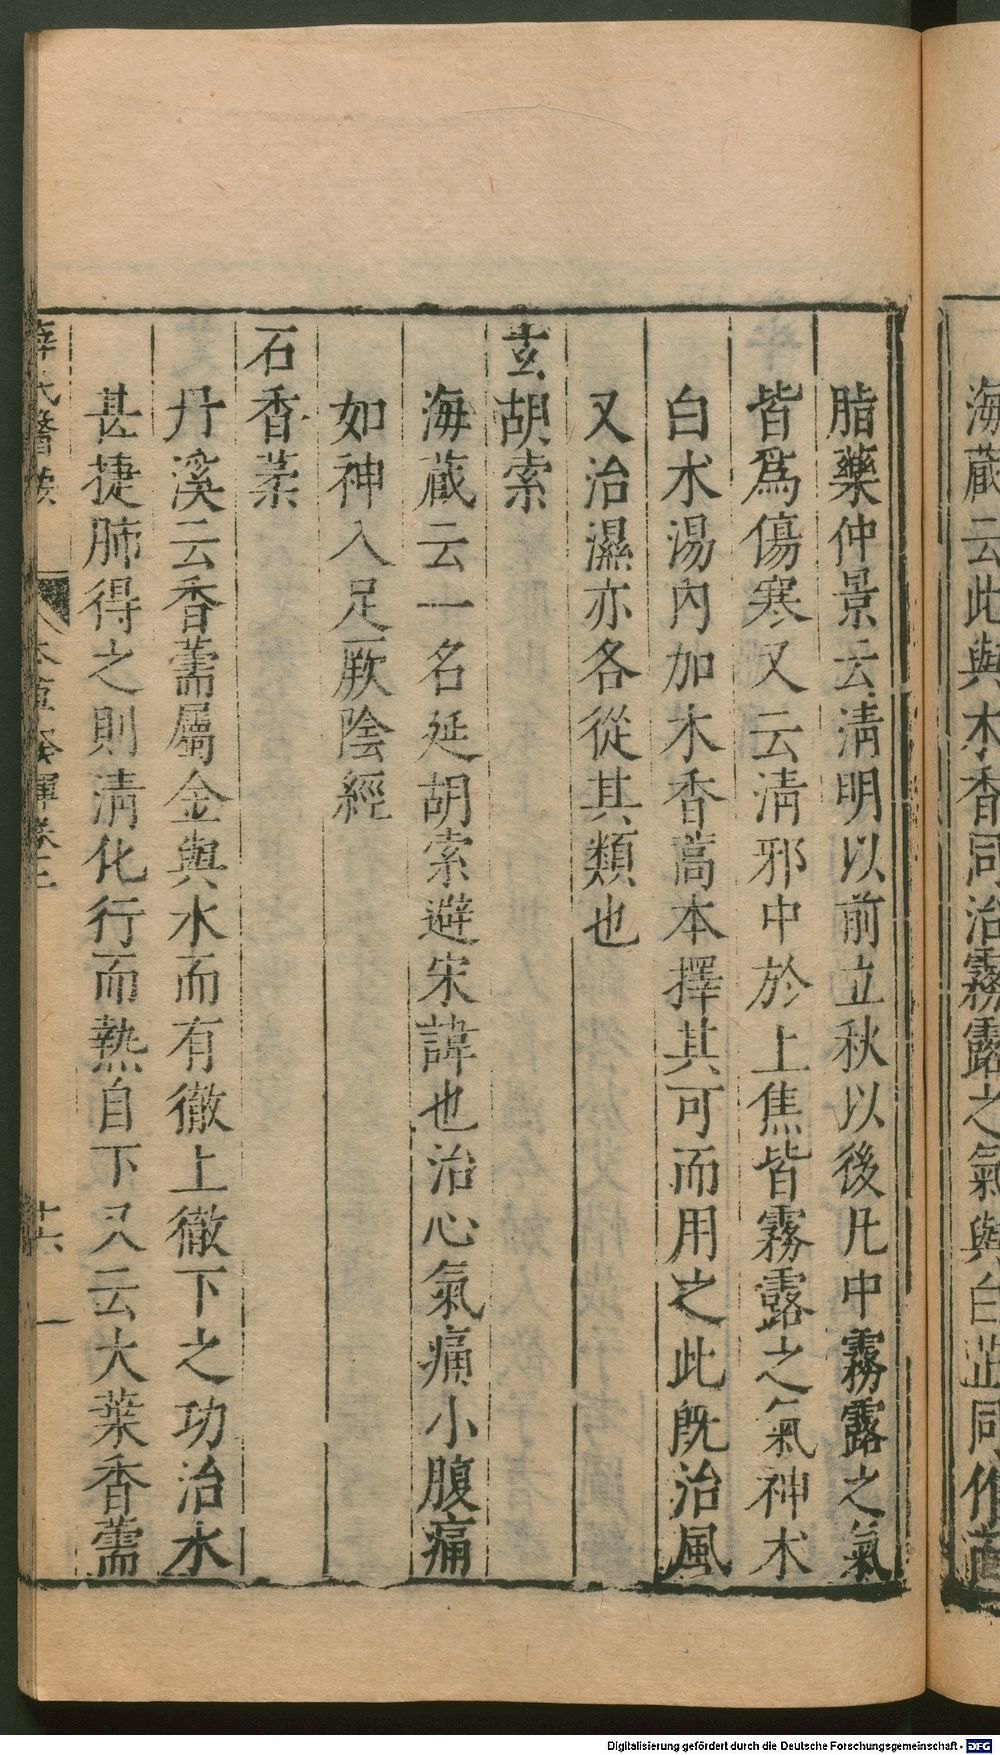 海藏云此與木香同治霧露之氣與白芷同作面
脂藥仲景云清明以前立秋以後凡中霧露之氣
皆爲傷寒又云清邪中於上焦皆霧露之氣神朮
白朮湯內加木香藁本擇其可而用之此旣治風
又治濕亦各從其類也
玄胡索
海藏云一名延胡索避宋諱也治心氣痛小腹痛
如神入足厥陰經
石香葇
丹溪云香薷屬金與水而有徹上徹下之功治水
甚捷肺得之則清化行而熱自下又云大葉香薷
薛氏醫案 本草發揮卷三 十六
Digitalisierung gefördert durch die Deutsche Forschungsgemeinschaft - DFG